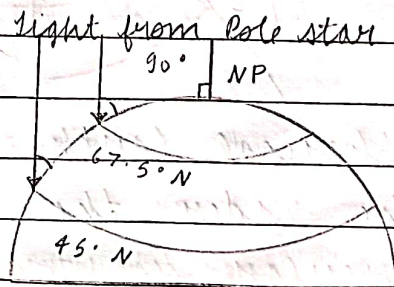 Light from Pole star
90°
NP
67.5° N
45° N